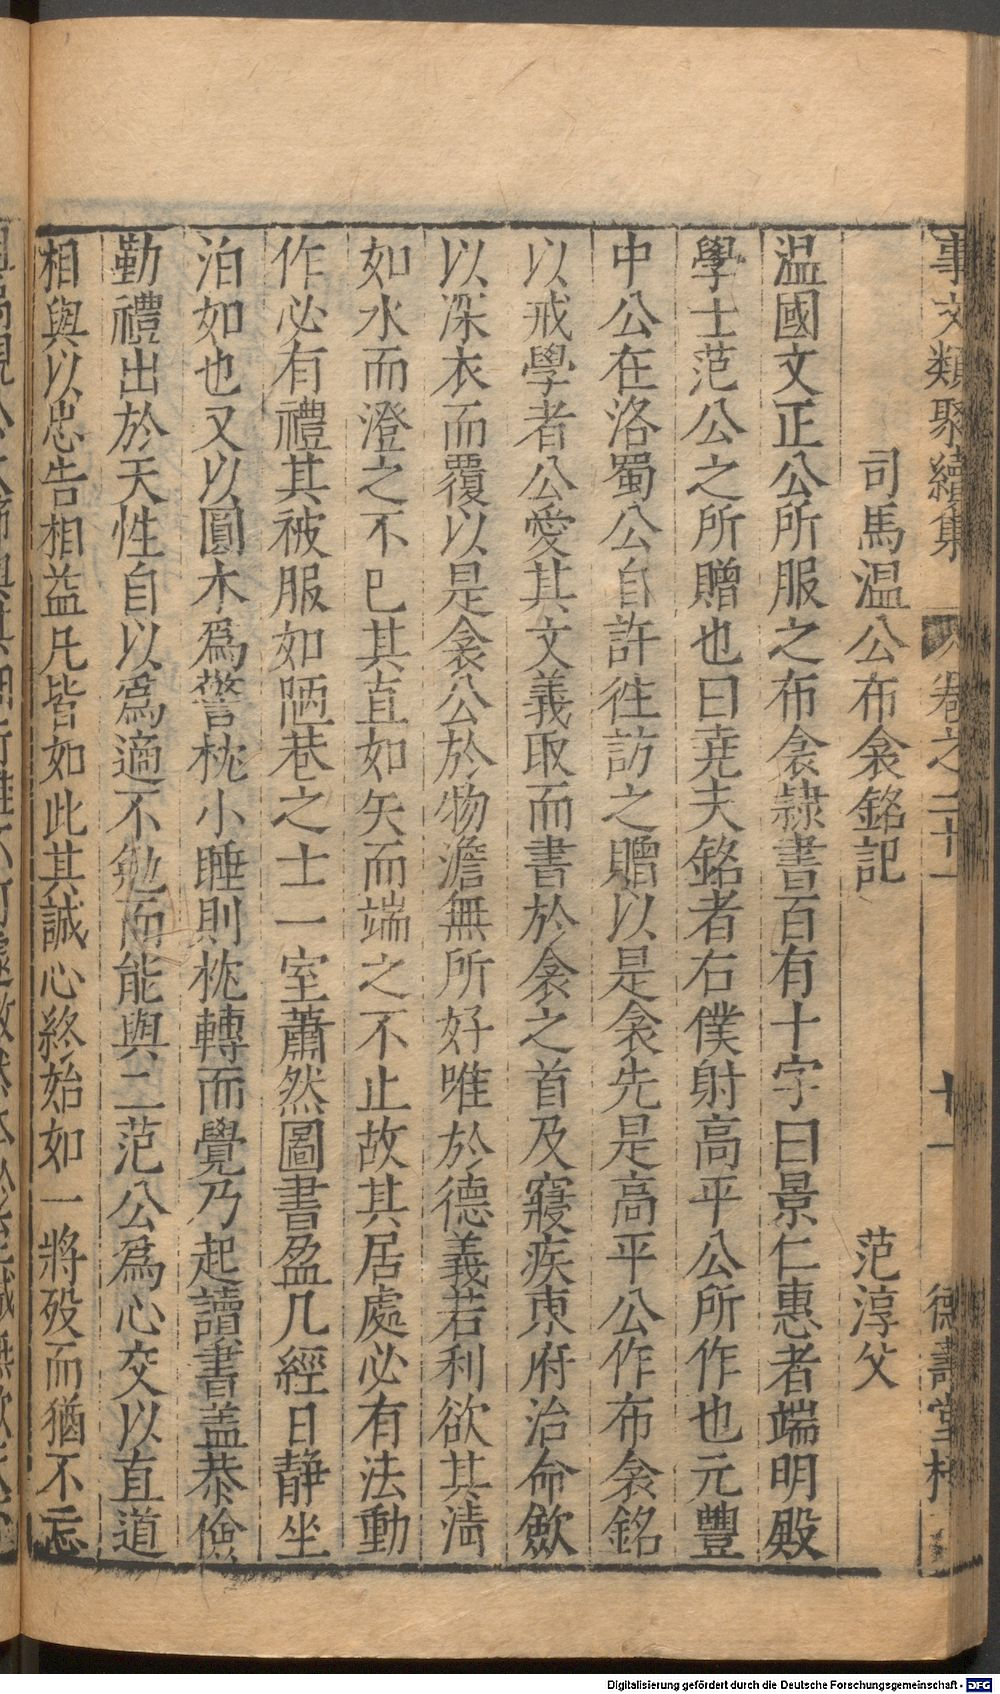 事文類聚續集 卷之二十一 十一 德壽堂梓
司馬温公布衾銘記 范淳父
温國文正公所服之布衾隷書百有十字曰景仁惠者端明殿
學士范公之所贈也曰堯夫銘者右僕射高平公所作也元豐
中公在洛蜀公自許徃訪之贈以是衾先是高平公作布衾銘
以戒學者公愛其文義取而書於衾之首及寢疾東府治命歛
以深衣而覆以是衾公於物澹無所好唯於德義若利欲其清
如水而澄之不已其直如矢而端之不止故其居處必有法動
作必有禮其被服如陋巷之士一室蕭然圖書盈几經日靜坐
泊如也又以圓木爲警枕小睡則枕轉而覺乃起讀書盖恭儉
勤禮出於天性自以爲適不勉而能與二范公爲心交以直道
相與以忠告相益凡皆如此其誠心終始如一將殁而猶不忘
Digitalisierung gefördert durch die Deutsche Forschungsgemeinschaft - DFG